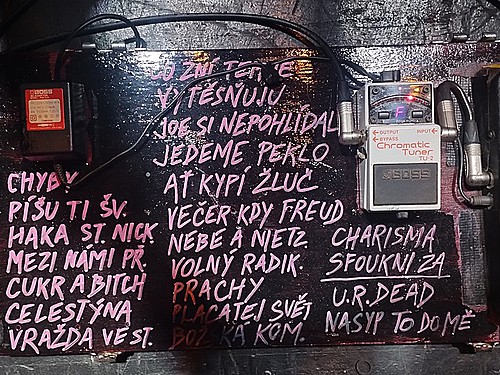 CO ZNÍ
VYTĚSŇUJU
JOE SI NEPOHLÍDAL
JEDEME PEKLO
AŤ KYPÍ ŽLUČ
VEČER KDY FREUD
NEBE A NIETZ
VOLNÝ RADIK.
PRACHY
PLACATEJ SVĚT
BOŽ KA KOM.
CHYBY
PÍŠU TI ŠV.
HAKA ST. NICK
MEZI NÁMI PR.
CUKR A BITCH
CELESTÝNA
VRAŽDA VE ST.
CHARISMA
SFOUKNI ZA
U.R. DEAD
NASYP TO DO MĚ
BOSS
OUTPUT
INPUT
BYPASS
Chromatic
Tuner
TU-2
BOSS